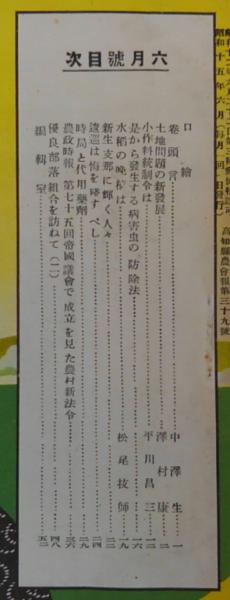 高知縣農會報第三十九號
昭和十五年六月一日發行（每月一回一日發行）
六月號目次
口繪
卷頭言……中澤生…一
土地問題の新發展……澤村康…二
小作料統制令は……平川昌三…一二
是から發生する病害虫の防除法……一六
水稻の晩植は……松尾技師…一九
新生支那に輝く人々……二二
逡巡は悔を殘すべし……二四
時局と代用藥劑……二九
農政時報 第七十五回帝國議會で成立を見た農村新法令……三六
優良部落組合を訪ねて（二）……四八
編輯室……五二